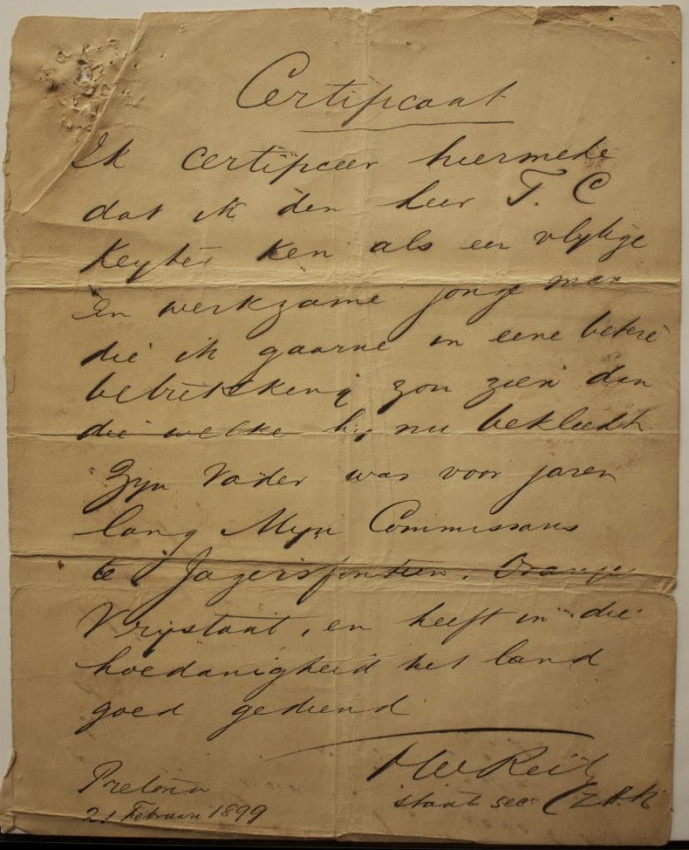 Certificaat
Ik certificeer hiermede
dat ik den heer T. C
Keyter ken als een vlytige
en werkzame jonge man
die ik gaarne in eene betere
betrekking zou zien dan
die welke hij nu bekleedt
Zyn Vader was voor jaren
lang Myn Commissaris
te Jagersfontein. Oranje
Vrijstaat, en heeft in die
hoedanigheid het land
goed gediend
FW Reitz
staat sec ZAR
Pretoria
21 Februari 1899